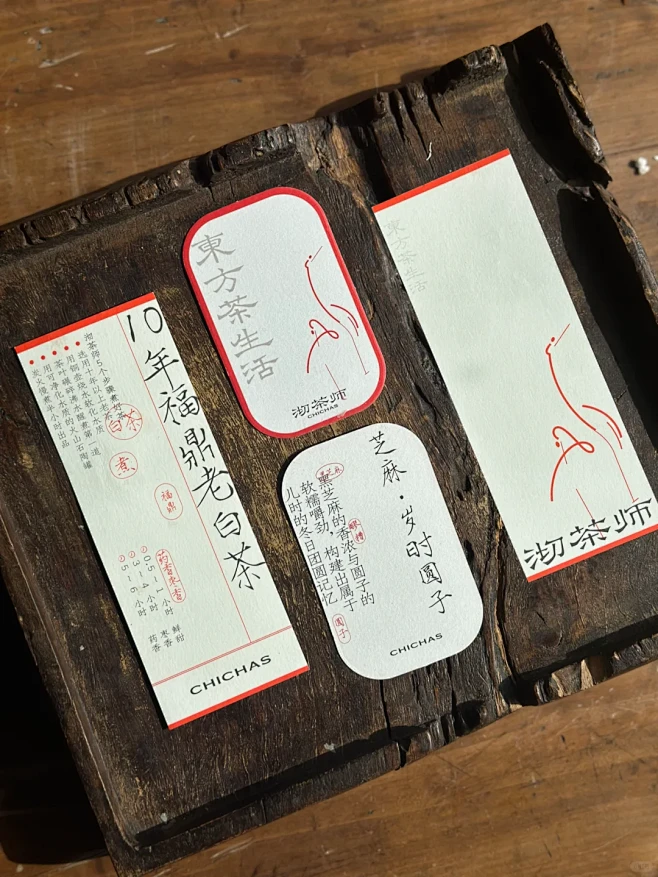 10年福鼎老白茶
沏茶师5个步骤煮好茶
选用十年以上老茶
用铜壶烧水软化水质
茶叶碾碎沸水醒茶第一道
用可净化水质的火山石陶罐
炭火慢煮半小时出品
白茶
煮
福鼎
药香枣香
05-1小时 鲜甜
3-4小时 枣香
5-6小时 药香
CHICHAS
東方茶生活
沏茶师
CHICHAS
芝麻·岁时圆子
黑芝麻
黑芝麻的香浓与圆子的
软糯嚼劲,构建出属于
儿时的冬日团圆记忆
圆子
CHICHAS
東方茶生活
沏茶师